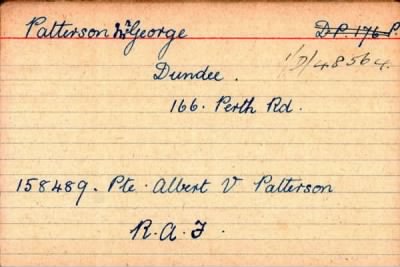 Patterson Mr George D.P. 176 P.
1/D/48564.
Dundee.
166. Perth Rd.
158489. Pte. Albert V Patterson
R.A.F.